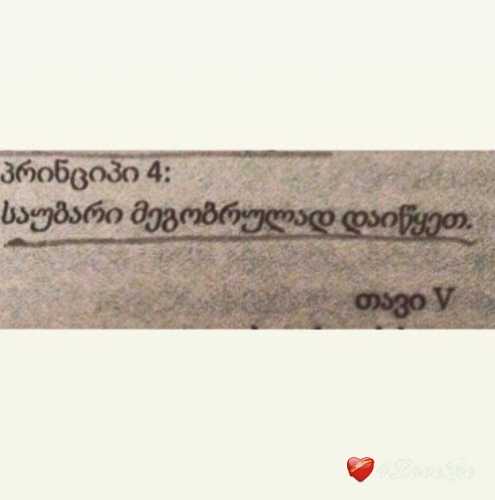 პრინციპი 4:
საუბარი მეგობრულად დაიწყეთ.
თავი V